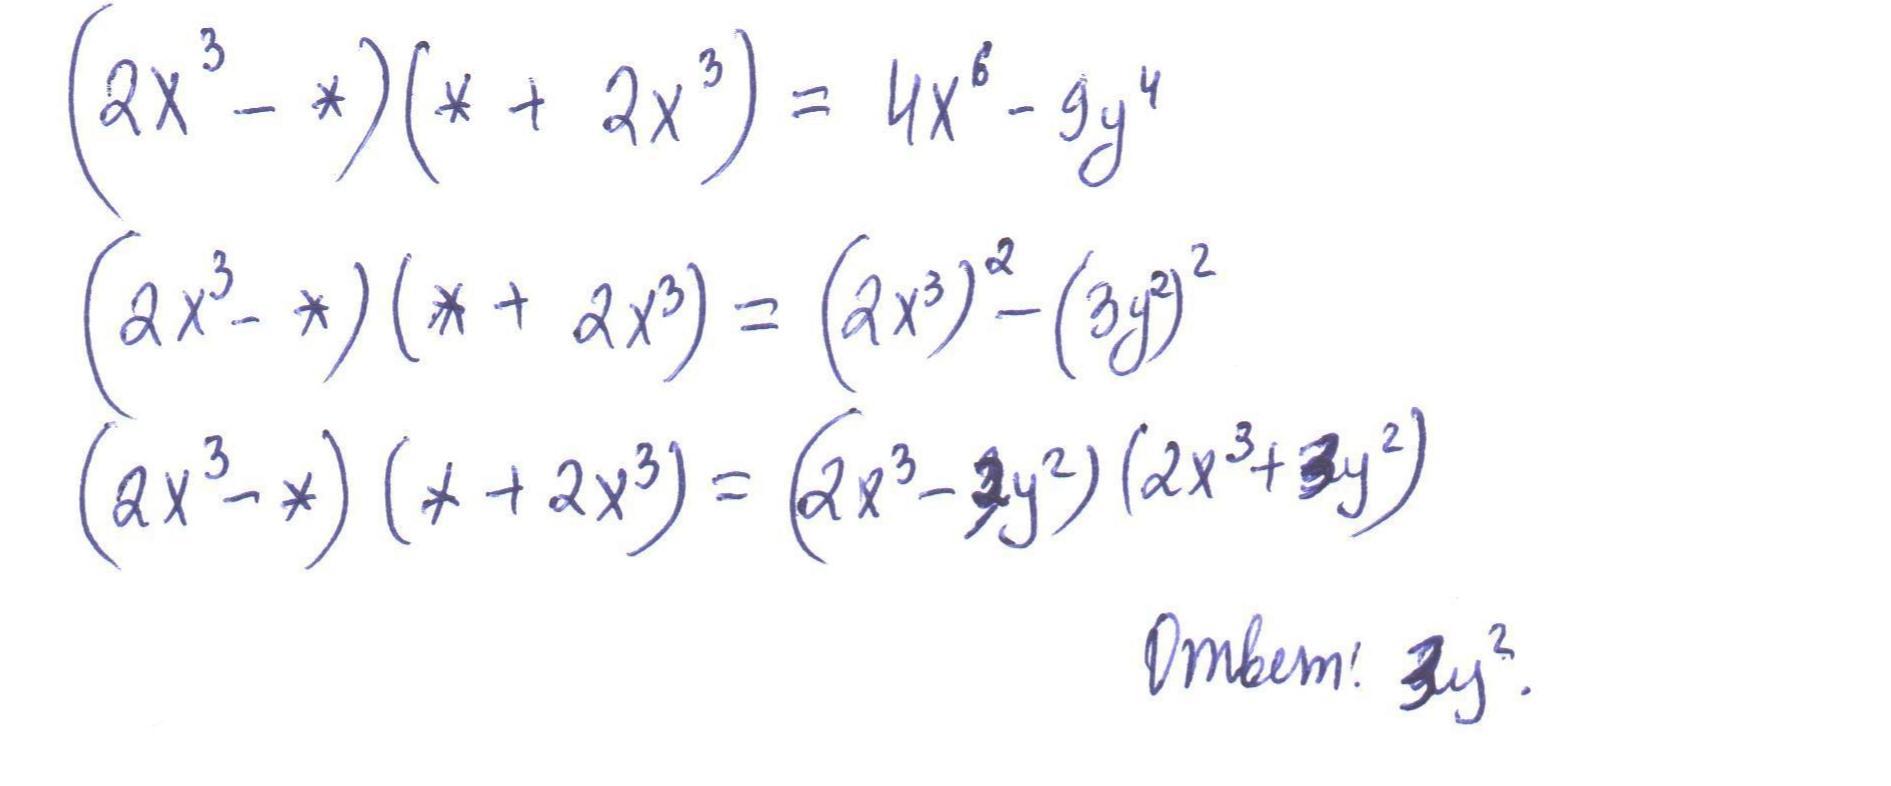 (2x³ - *)(* + 2x³) = 4x⁶ - 9y⁴
(2x³ - *)(* + 2x³) = (2x³)² - (3y²)²
(2x³ - *)(* + 2x³) = (2x³ - 3y²)(2x³ + 3y²)
Ответ: 3y².